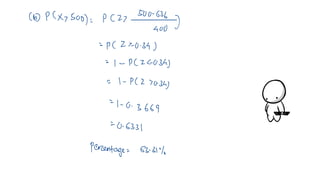 (b) P(X>500) = P(Z> 500-636 / 400)
= P(Z>0.34)
= 1-P(Z<0.34)
= 1-P(Z>0.34)
= 1-0.3669
= 0.6331
Percentage = 63.31%